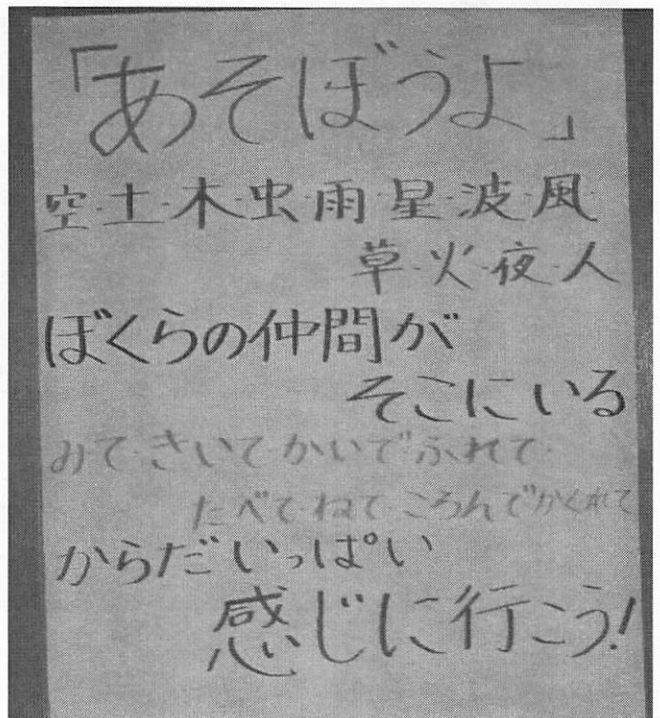 「あそぼうよ」
空・土・木・虫・雨・星・波・風・
草・火・夜・人
ぼくらの仲間が
そこにいる
みて・きいて・かいで・ふれて・
たべて・ねて・ころんで・かくれて
からだいっぱい
感じに行こう!